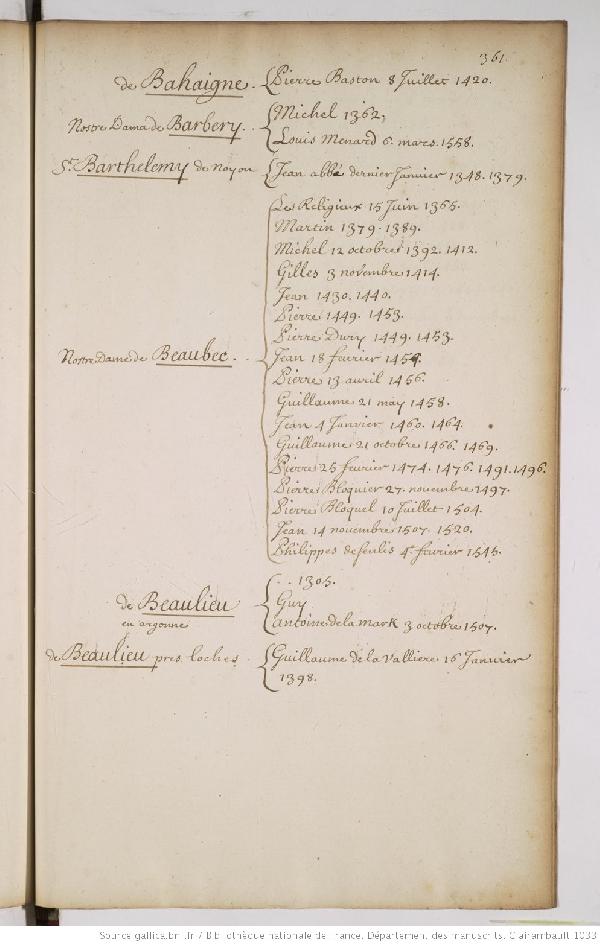 361.
de Bahaigne. Pierre Baston 8 Juillet 1420.
Michel 1362,
Nostre Dama de Barbery. .
Louis Menard 6. mars. 1558.
St. Barthelemy de Noyon Jean abbé dernier Janvier 1348. 1379.
Les Religieux 15 Juin 1365.
Martin 1379. 1389.
Michel 12 octobre 1392. 1412.
Gilles 3 novembre 1414.
Jean 1430. 1440.
Pierre 1449. 1453.
Pierre Dury 1449. 1453.
Nostre Dame de Beaubec. . Jean 18 fevrier 1454.
Pierre 13 avril 1456.
Guillaume 21 may 1458.
Jean 4 Janvier 1460. 1464.
Guillaume 21 octobre 1466. 1469.
Pierre 25 fevrier 1474. 1476. 1491. 1496.
Pierre Bloquier 27. novembre 1497.
Pierre Bloquel 10 Juillet 1504.
Jean 14 novembre 1507. 1520.
Philippes de senlis 4e fevrier 1545.
. . . 1305.
de Beaulieu Guy
en argonne antoine de la mark 3 octobre 1507.
de Beaulieu pres loches. Guillaume de la Valliere 16 Janvier
1398.
Source gallica.bnf.fr / Bibliothèque nationale de France. Département des manuscrits. Clairambault 1033